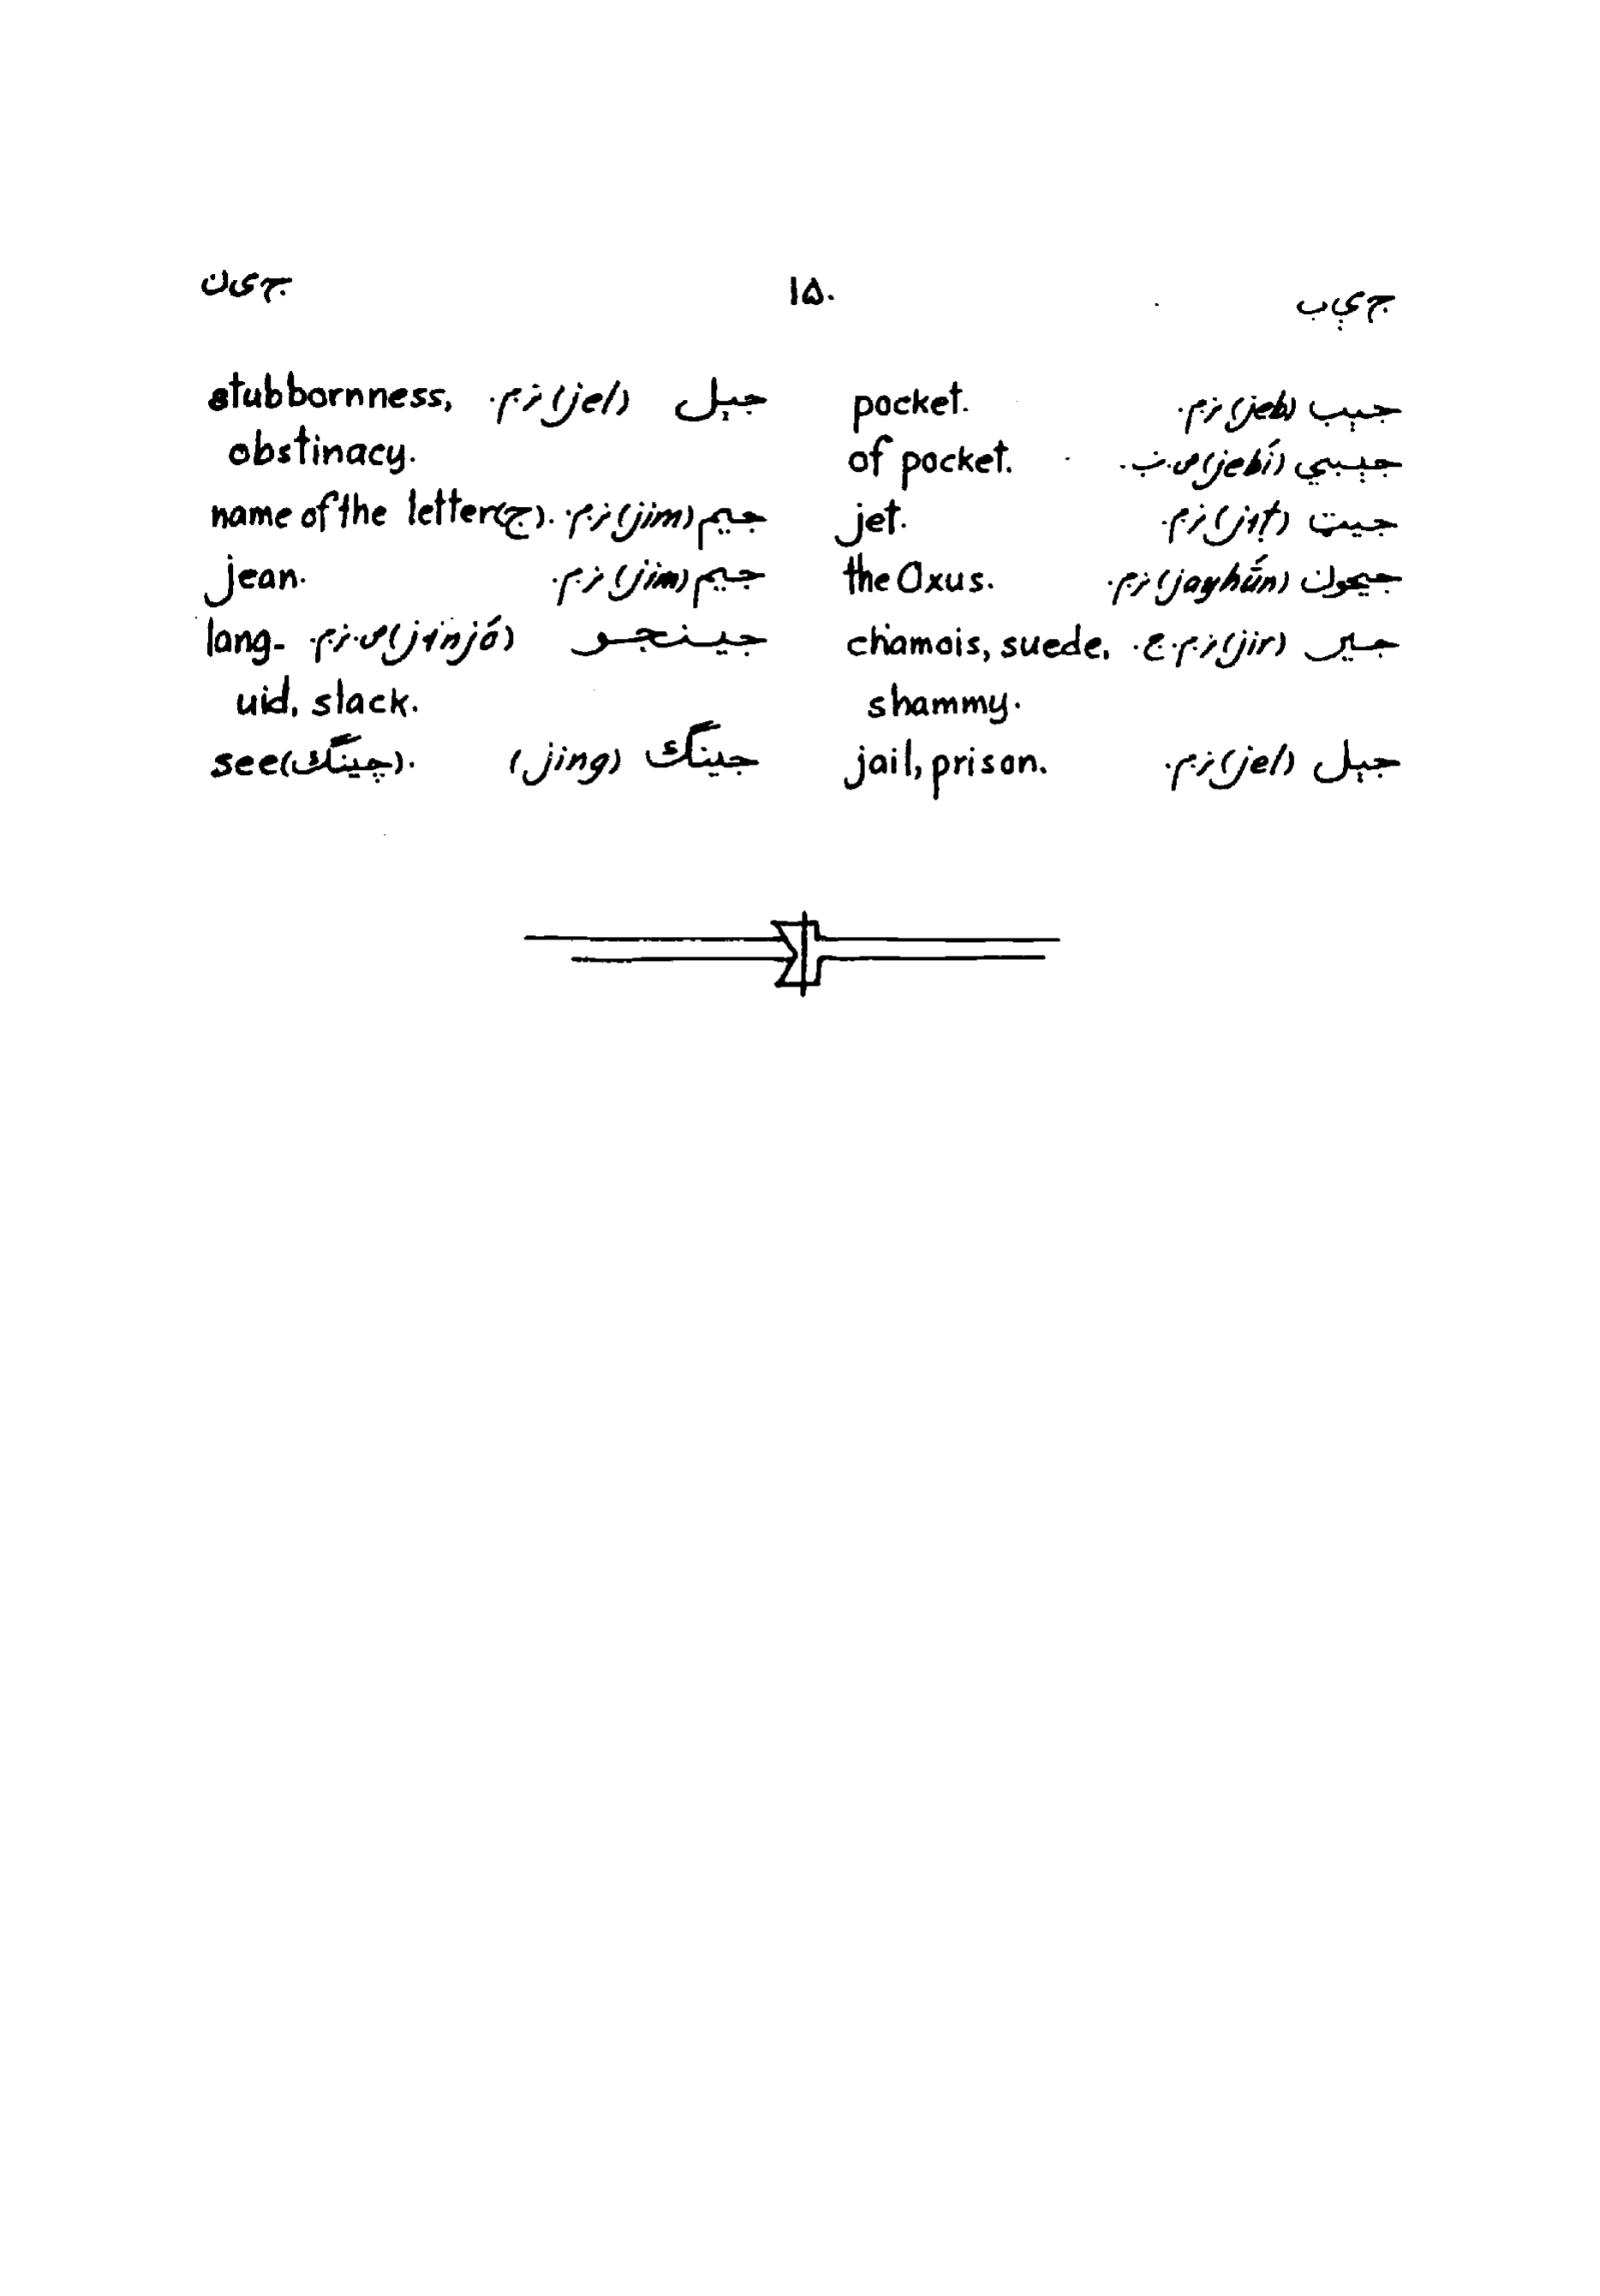 ج ې ب ۱۵۰ ج ی ن
جېب (jeb) نز.م. pocket.
جېبي (jebí) ص.نب. of pocket.
جیټ (jıṭ) نز.م. jet.
جیحون (jayhún) نز.م. the Oxus.
جیر (jir) نز.م.ج. chamois, suede,
shammy.
جېل (jel) نز.م. jail, prison.
جېل (jel) نز.م. stubbornness,
obstinacy.
جیم (jim) نز.م. name of the letter(ج).
جیم (jim) نز.م. jean.
جینجو (jınjó) ص.نز.م. lang-
uid, slack.
جینګ (jing) see(چینګ).